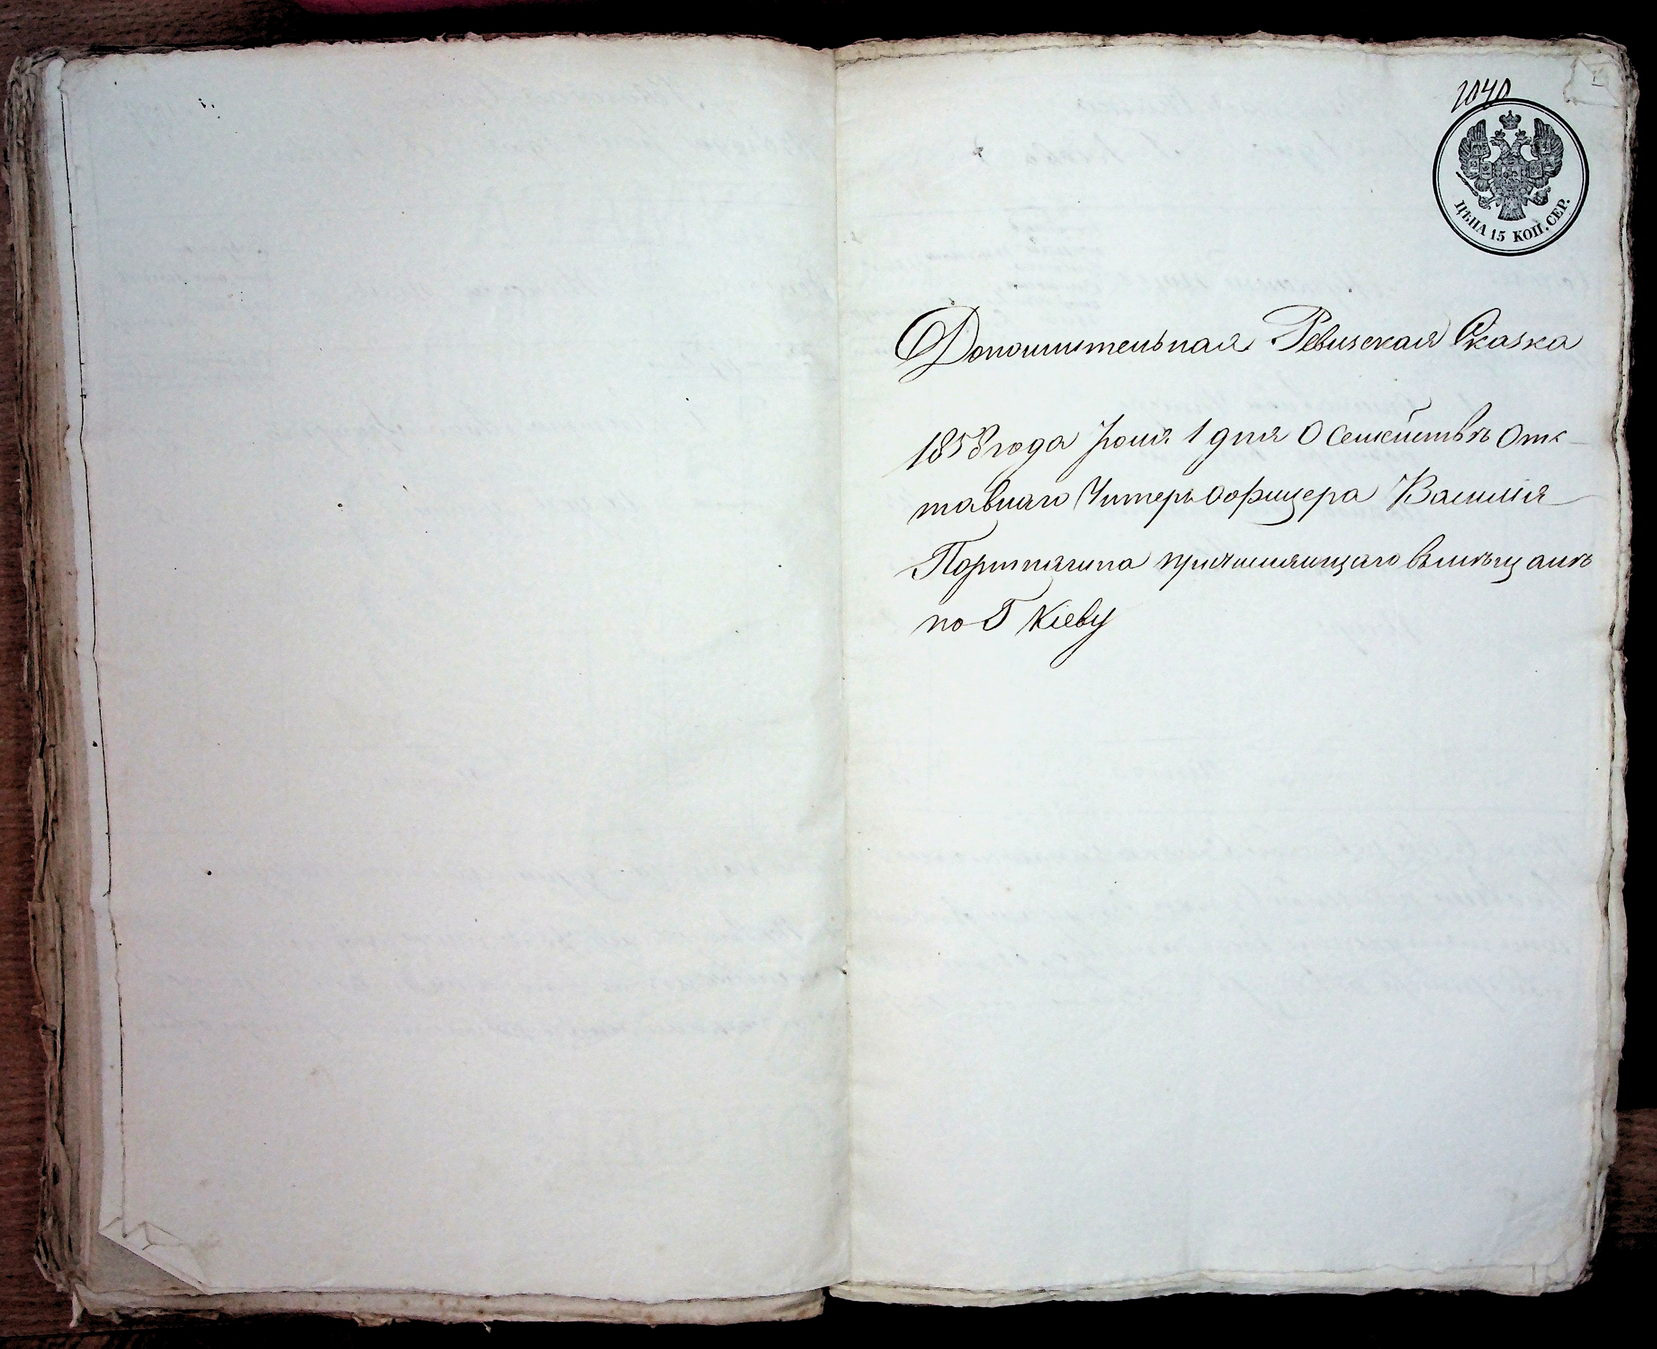 1040
ЦѢНА 15 КОП. СЕР.
Дополнительная Ревизская Сказка
1858 года Іюня 1 дня О Семействѣ Отс-
тавнаго Унтеръ Офицера Василія
причисляющаго въ мѣщане
по Г Кіеву